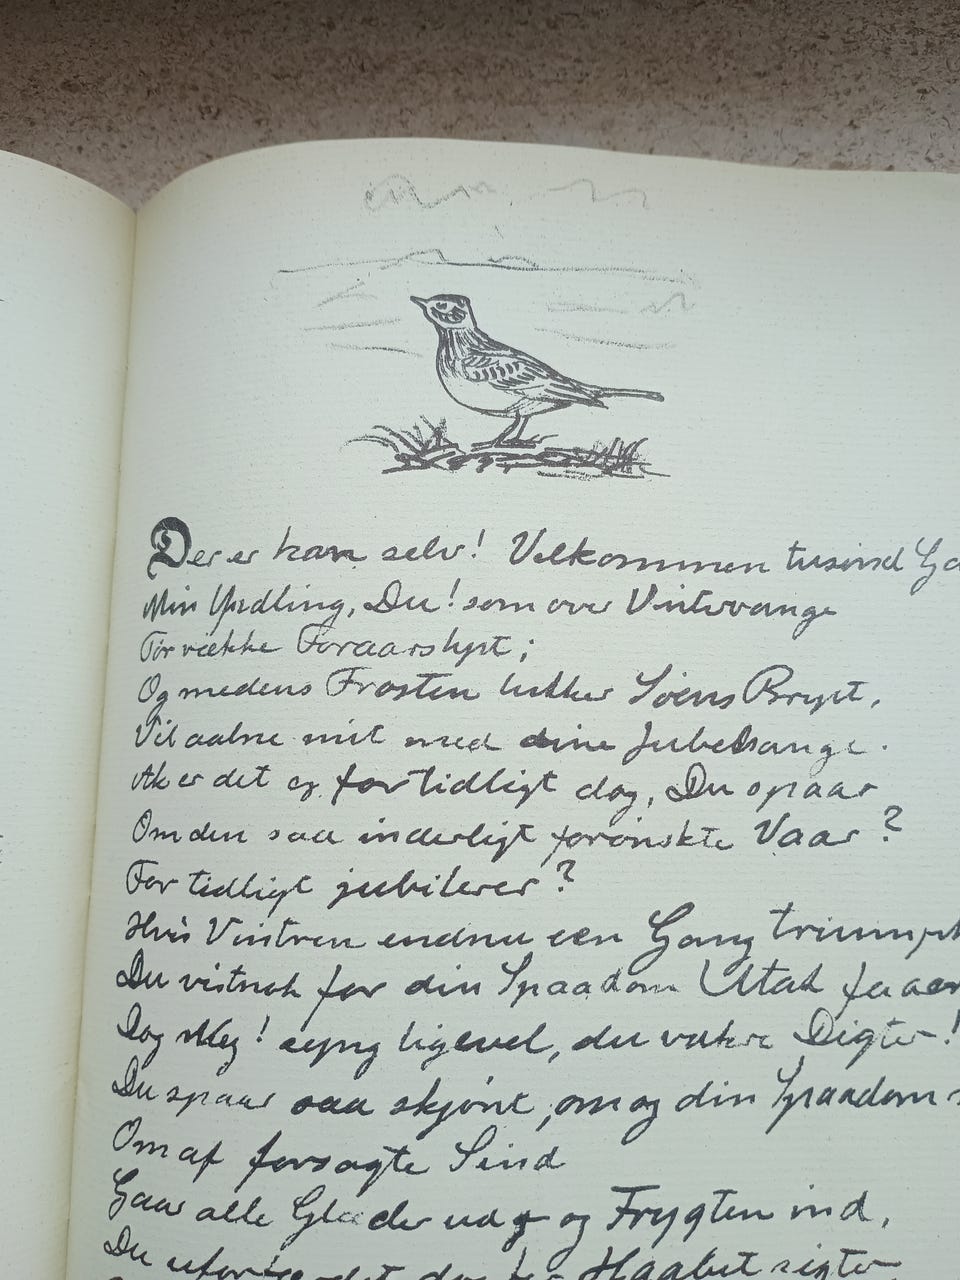 Der er han selv! Velkommen tusind
Min Yndling, Du! som over Vintervange
Tør vække Foraarslyst;
Og medens Frosten lukker Søens Bryst,
Vil aabne mit med dine Jubelsange.
Ak er det ej for tidligt dog, Du spaar
Om den saa inderligt forønskte Vaar?
For tidligt jubilerer?
Hvis Vintren endnu een Gang
Du vistnok for din Spaadom Utak faaer
Dog Nej! syng ligevel, du vakre Digter!
Du spaar saa skjønt, om og din Spaadom
Om af forsagte Sind
Gaar alle Glæder ud og Frygten ind,
Du uforfærdet dog for Haabet sigter